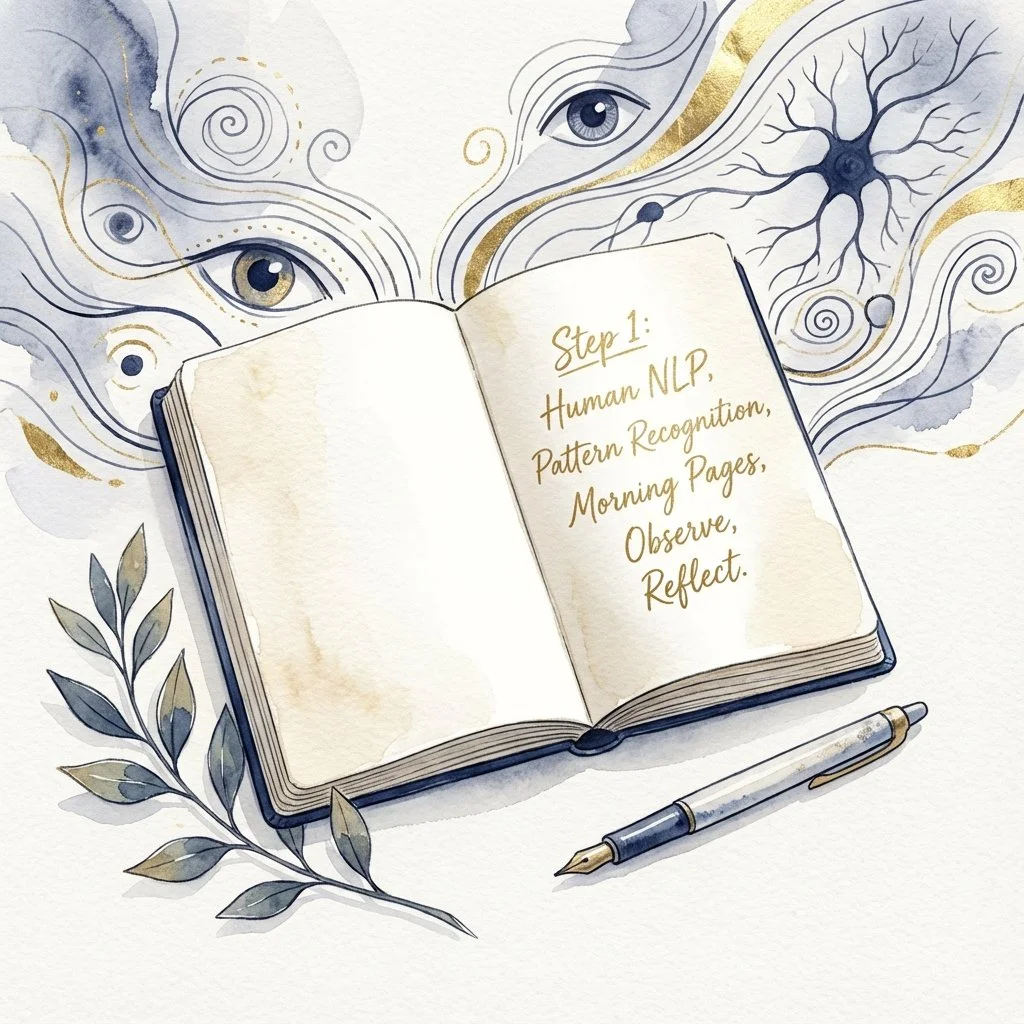 Step 1:
Human NLP,
Pattern Recognition,
Morning Pages,
Observe,
Reflect.